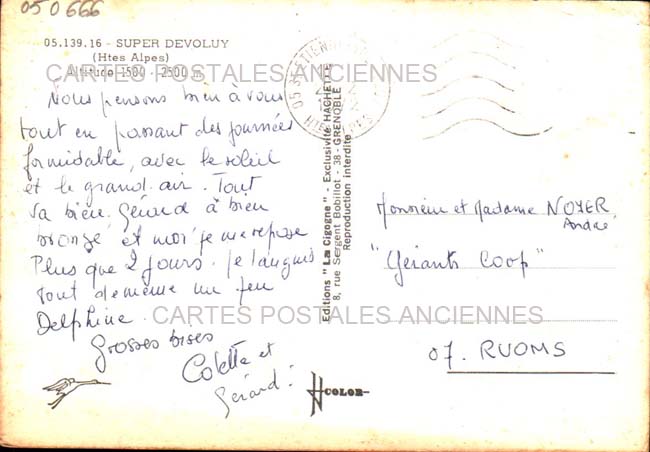 050666
05.139.16 - SUPER DEVOLUY
(Htes Alpes)
Altitude 1500 - 2500 m
CARTES POSTALES ANCIENNES
Nous pensons bien à vous
tout en passant des journées
formidable, avec le soleil
et le grand air. Tout
va bien. Gérard à bien
bronzé et moi je me repose
Plus que 2 jours. Je languis
tout de même un peu
Delphine.
Grosses bises
Colette et
Gérard.
CARTES POSTALES ANCIENNES
Editions "La Cigogne" - Exclusivité HACHETTE
8, rue Sergent Bobillot - 38 - GRENOBLE
Reproduction interdite
COLOR
05 ST ETIENNE
Monsieur et Madame NOYER
André
"Gérants Coop"
07. RUOMS